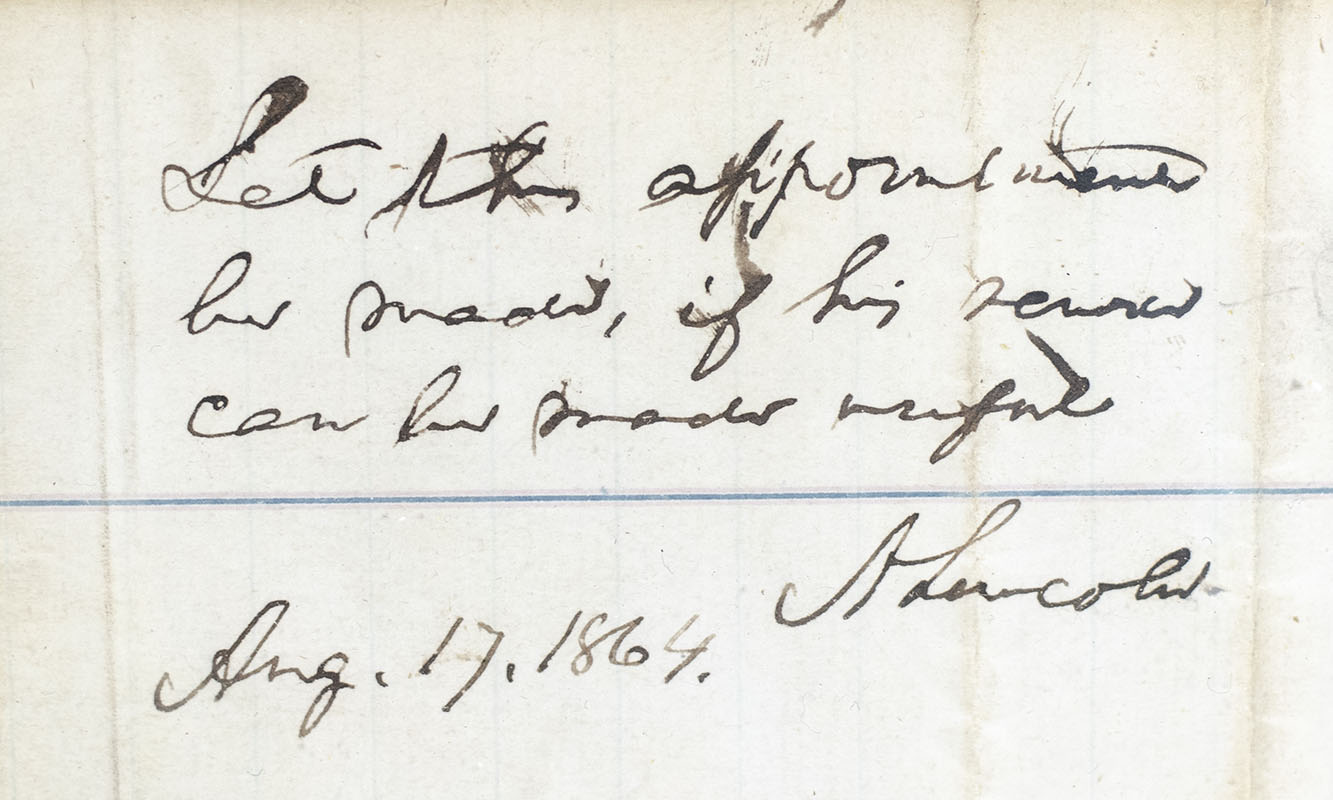 Let this appointment
be made, if his service
can be made useful
A. Lincoln
Aug. 17. 1864.